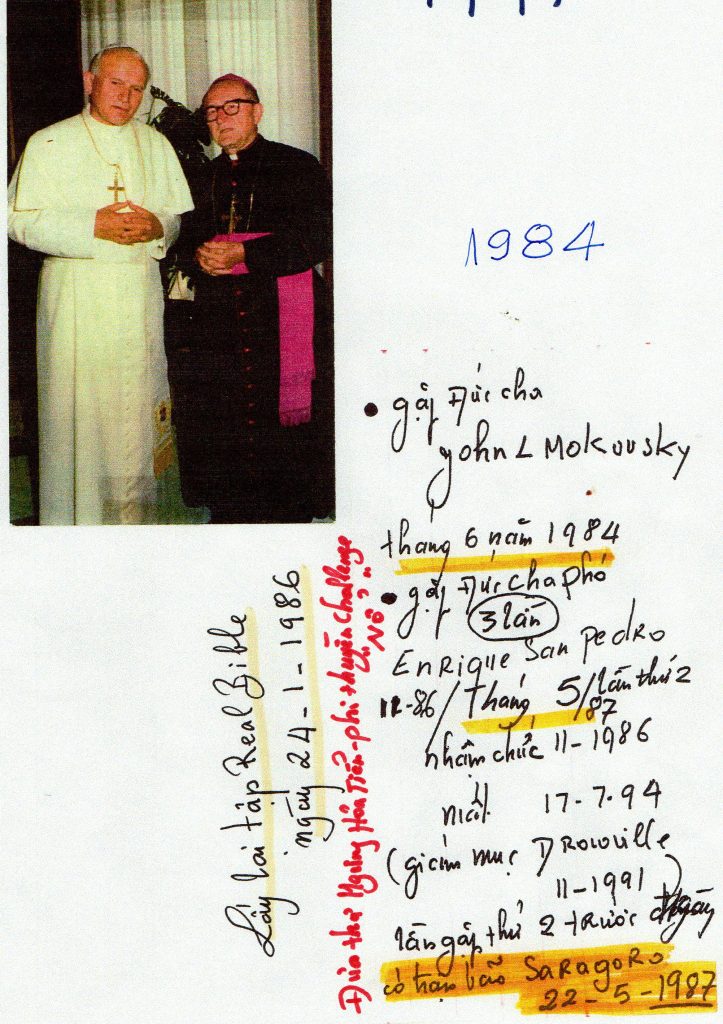 1984
• gặp Đức cha
John L Mokovsky
tháng 6 năm 1984
• gặp Đức cha phó
3 lần
Enrique San Pedro
11-86/ tháng 5/87 lần thứ 2
nhậm chức 11-1986
mất 17-7-94
(giám mục Browville
11-1991)
lần gặp thứ 2 trước ngày
có trận bão Saragoro
22-5-1987
Lấy lại tập Real Bible
ngày 24-1-1986
Đứa thứ Ngưỡng Hỏa Tiển-phi thuyền challenge
"Nổ"